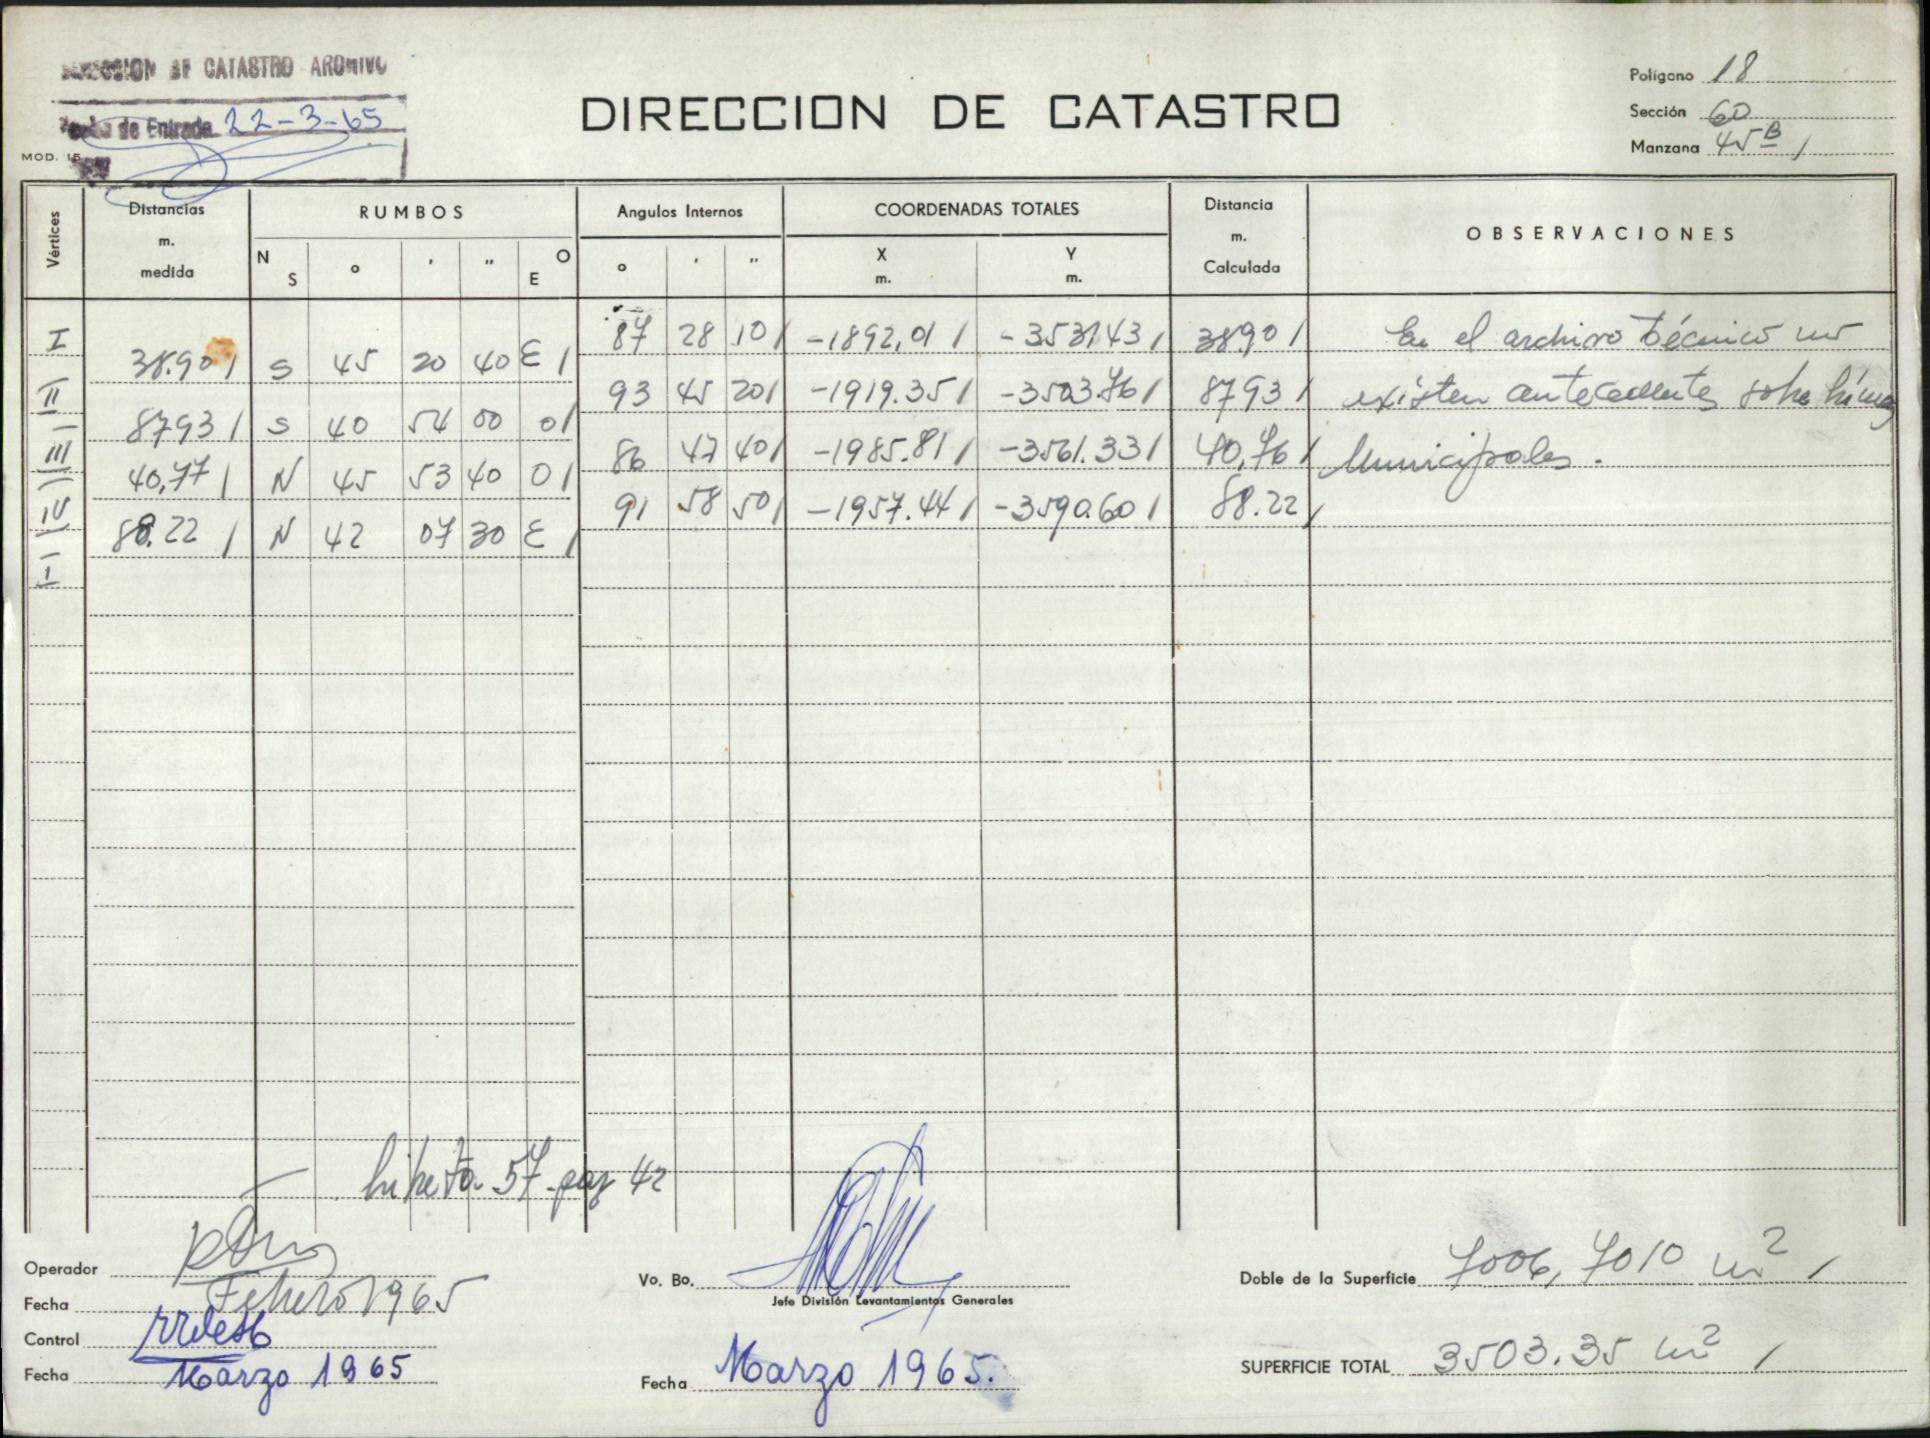 DIRECCION DE CATASTRO ARCHIVO
Fecha de Entrada 22-3-65
MOD. 15
DIRECCION DE CATASTRO
Polígono 18
Sección 60
Manzana 45B /
Vértices
Distancias m. medida
RUMBOS
N S ° ' " O E
Angulos Internos
° ' "
COORDENADAS TOTALES
X m. Y m.
Distancia m. Calculada
OBSERVACIONES
I 87 28 10 / -1892,01 / -3531.43 / 38.90 / En el archivo técnico no
38.90 / S 45 20 40 E /
II 93 45 20 / -1919.35 / -3503.76 / 87.93 / existen antecedentes sobre líneas
87.93 / S 40 54 00 O /
III 86 47 40 / -1985.81 / -3561.33 / 40,76 / Municipales.
40,77 / N 45 53 40 O /
IV 91 58 50 / -1957.44 / -3590.60 / 88.22 /
88.22 / N 42 07 30 E /
I
Libreta 57 - pag 42
Operador
Fecha Febrero 1965
Control
Fecha Marzo 1965
Vo. Bo.
Jefe División Levantamientos Generales
Fecha Marzo 1965.
Doble de la Superficie 7006,7010 m2 /
SUPERFICIE TOTAL 3503.35 m2 /